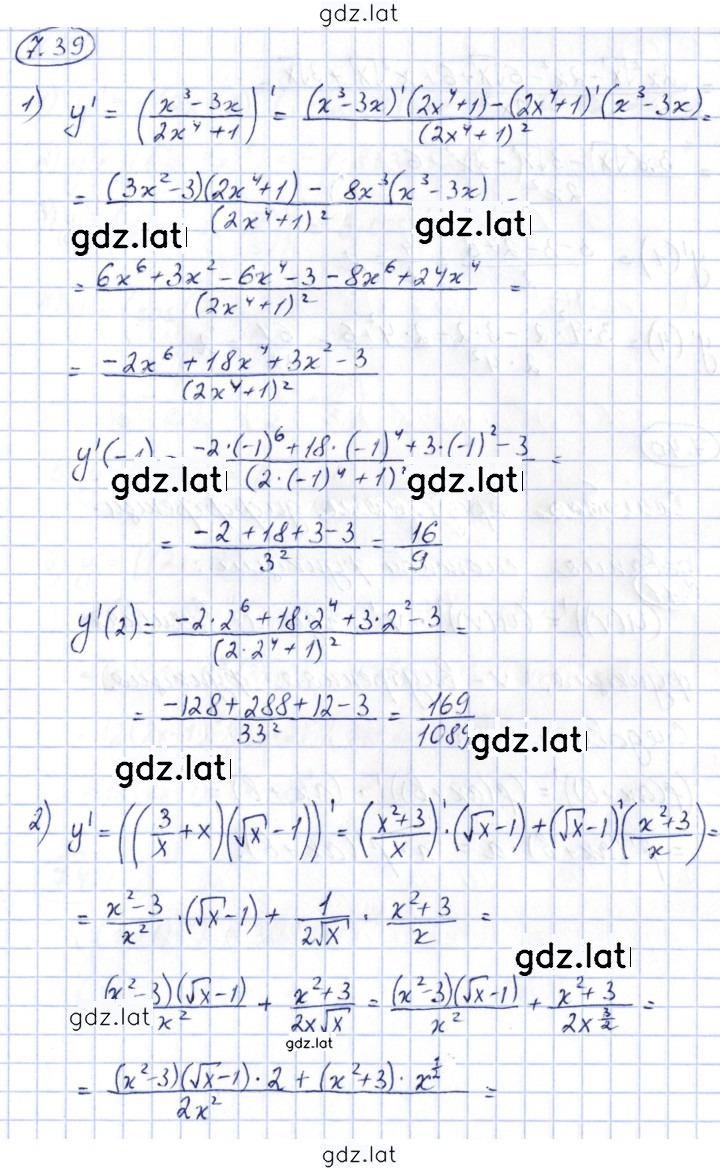 gdz.lat
7.39
1) y' = ((x³-3x)/(2x⁴+1))' = ((x³-3x)'(2x⁴+1)-(2x⁴+1)'(x³-3x))/(2x⁴+1)² =
= ((3x²-3)(2x⁴+1) - 8x³(x³-3x))/(2x⁴+1)² =
gdz.lat gdz.lat
= (6x⁶+3x²-6x⁴-3-8x⁶+24x⁴)/(2x⁴+1)² =
= (-2x⁶+18x⁴+3x²-3)/(2x⁴+1)²
y'(-1) = (-2·(-1)⁶+18·(-1)⁴+3·(-1)²-3)/(2·(-1)⁴+1)² =
gdz.lat gdz.lat
= (-2+18+3-3)/3² = 16/9
y'(2) = (-2·2⁶+18·2⁴+3·2²-3)/(2·2⁴+1)² =
= (-128+288+12-3)/33² = 169/1089
gdz.lat gdz.lat
2) y' = ((3/x+x)(√x-1))' = ((x²+3)/x)'·(√x-1)+(√x-1)'((x²+3)/x) =
= (x²-3)/x² ·(√x-1) + 1/(2√x) · (x²+3)/x =
gdz.lat
(x²-3)(√x-1)/x² + (x²+3)/(2x√x) = (x²-3)(√x-1)/x² + (x²+3)/(2x^(3/2)) =
gdz.lat gdz.lat
= ((x²-3)(√x-1)·2 + (x²+3)·x^(1/2))/(2x²) =
gdz.lat